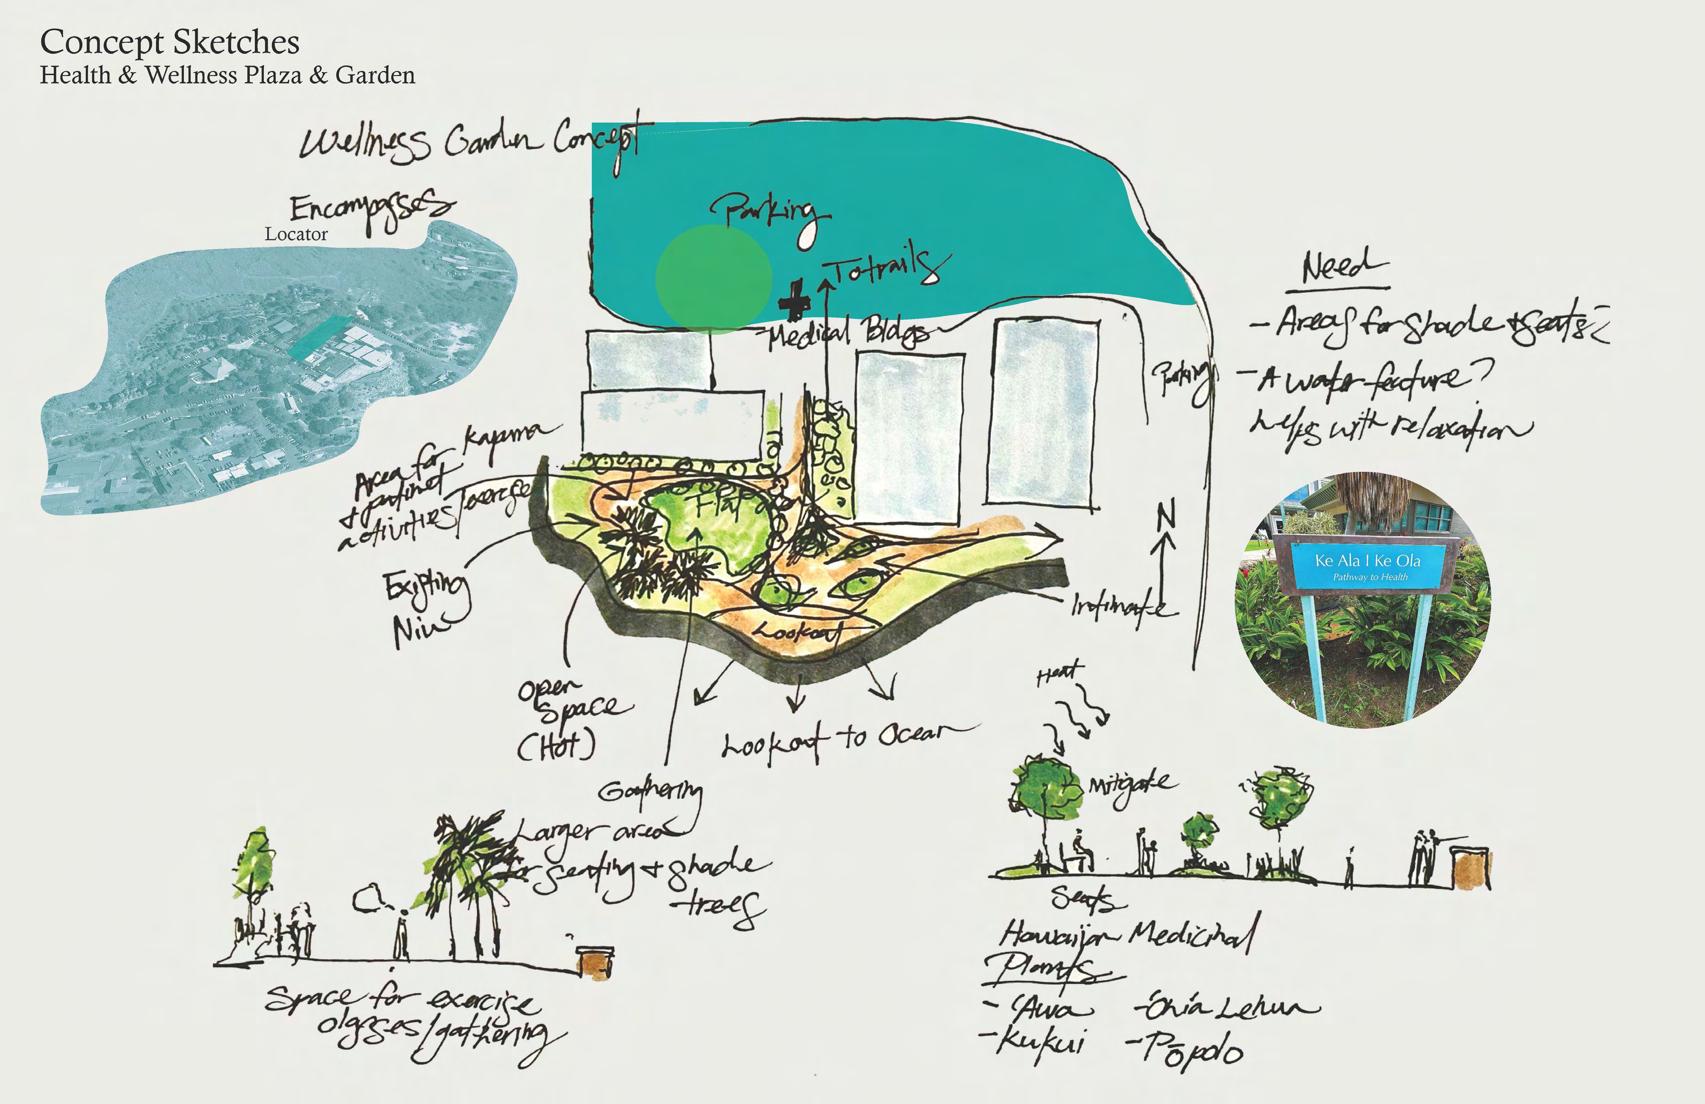 Concept Sketches
Health & Wellness Plaza & Garden
Wellness Garden Concept
Encompasses
Locator
Parking
To trails
Medical Bldgs
Parking
Need
- Areas for shade + seats
- A water feature?
helps with relaxation
Kapuna
Area for
+ patient
activities/Exercise
Flat
Existing
Niu
N
Ke Ala I Ke Ola
Pathway to Health
Intimate
Lookout
Open
Space
(Hot)
Lookout to Ocean
Heat
Mitigate
Gathering
Larger area
for seating + shade
trees
Seats
Hawaiian Medicinal
Plants
- 'Awa
- 'Ōhi'a Lehua
- Kukui
- Pōpolo
Space for exercise
classes/gathering